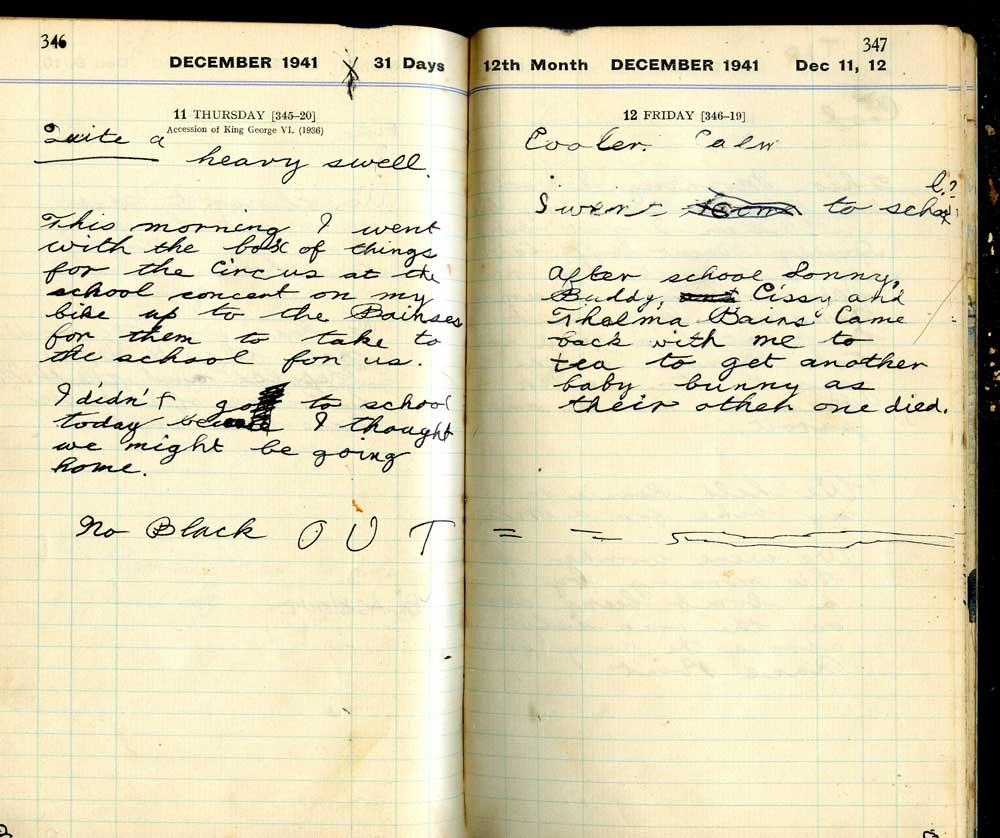 346
DECEMBER 1941
31 Days
11 THURSDAY [345–20]
Accession of King George VI. (1936)
Quite a
heavy swell.
This morning I went
with the box of things
for the Circus at the
school concert on my
bike up to the Bainses
for them to take to
the school for us.
I didn't go to school
today I thought
we might be going
home.
No Black O U T = =
347
12th Month DECEMBER 1941 Dec 11, 12
12 FRIDAY [346–19]
Cooler. Calm
I went to school
After school Sonny,
Buddy, and Cissy and
Thelma Bains Came
back with me to
tea to get another
baby bunny as
their other one died.